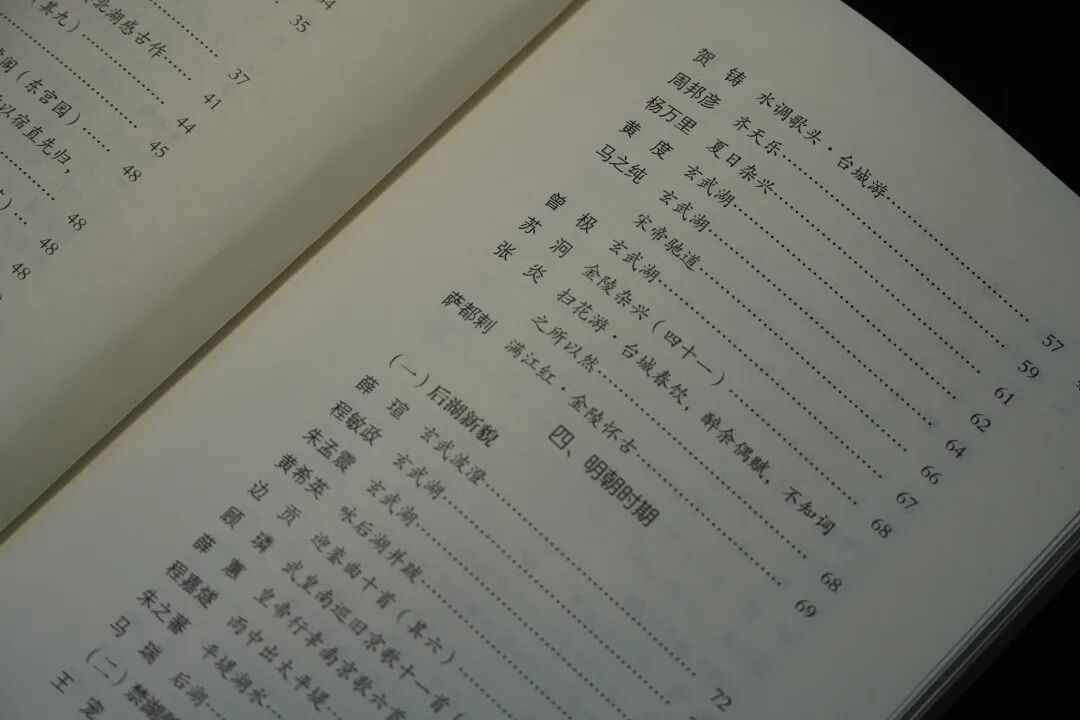 35
37
北湖感古作……41
（其九）……44
……45
阁（东宫园）……48
以宿直先归，
……48
……48
48
贺 铸 水调歌头·台城游……57
周邦彦 齐天乐……59
杨万里 夏日杂兴……61
黄 度 玄武湖……62
马之纯 玄武湖……64
宋帝驰道……66
曾 极 玄武湖……67
苏 泂 金陵杂兴（四十一）……68
张 炎 扫花游·台城春饮，醉余偶赋，不知词
之所以然……68
萨都剌 满江红·金陵怀古……69
四、明朝时期
（一）后湖新貌
薛 瑄 玄武波澄……72
程敏政 玄武湖……
朱孟震 玄武湖……
黄希英 咏后湖并跋……
边 贡 迎銮曲十首（其六）……
顾 璘 武皇南巡旧京歌十一首
薛 蕙 皇帝行幸南京歌六首
程嘉燧 雨中出太平堤……
朱之蕃 平堤湖水……
马 瑞 后湖……
（二）禁湖
王 宠